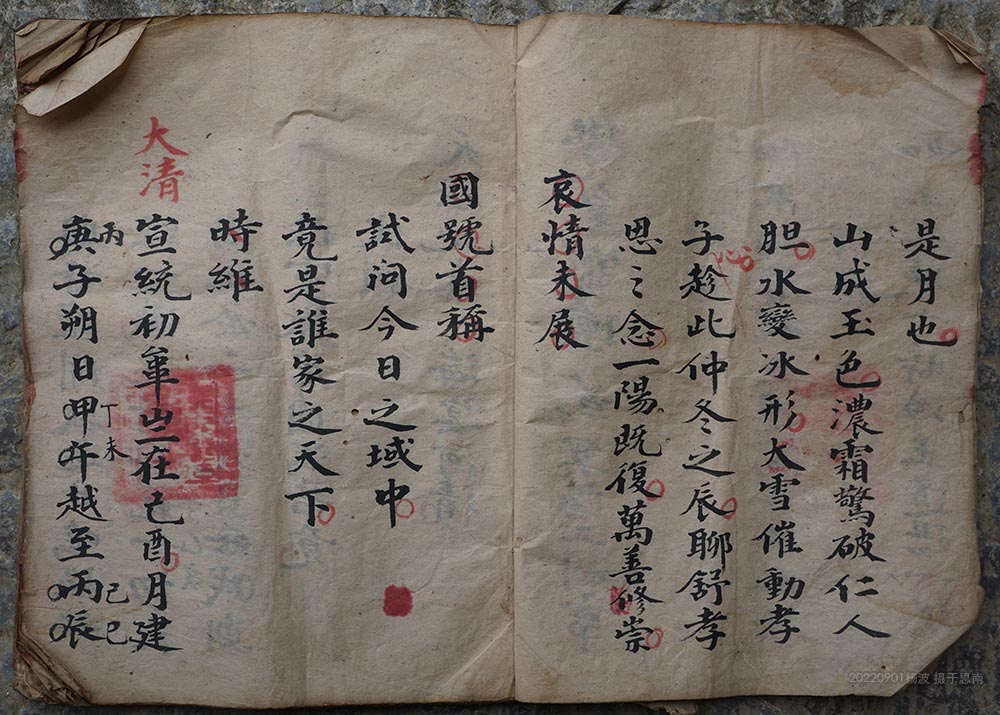 是月也
山成玉色濃霜驚破仁人
胆水變冰形大雪催動孝
子趁此仲冬之辰聊舒孝
心
思〻念一陽既復萬善修崇
哀情未展
國號首稱
試问今日之域中
竟是誰家之天下
時維
大清
宣統初年岦在己酉月建
丙
庚子朔日甲午越至丙辰
丁未
己巳
20220901杨波 摄于思南